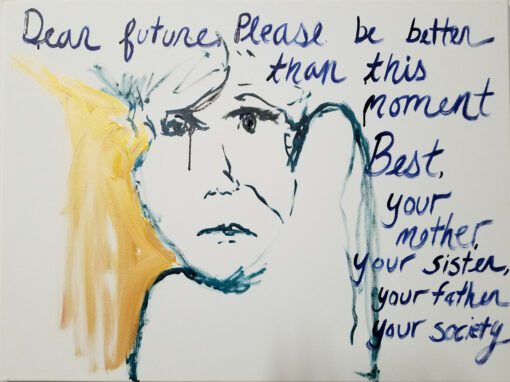 Dear future, Please be better
than this
moment
Best,
your
mother,
your sister,
your father
your society